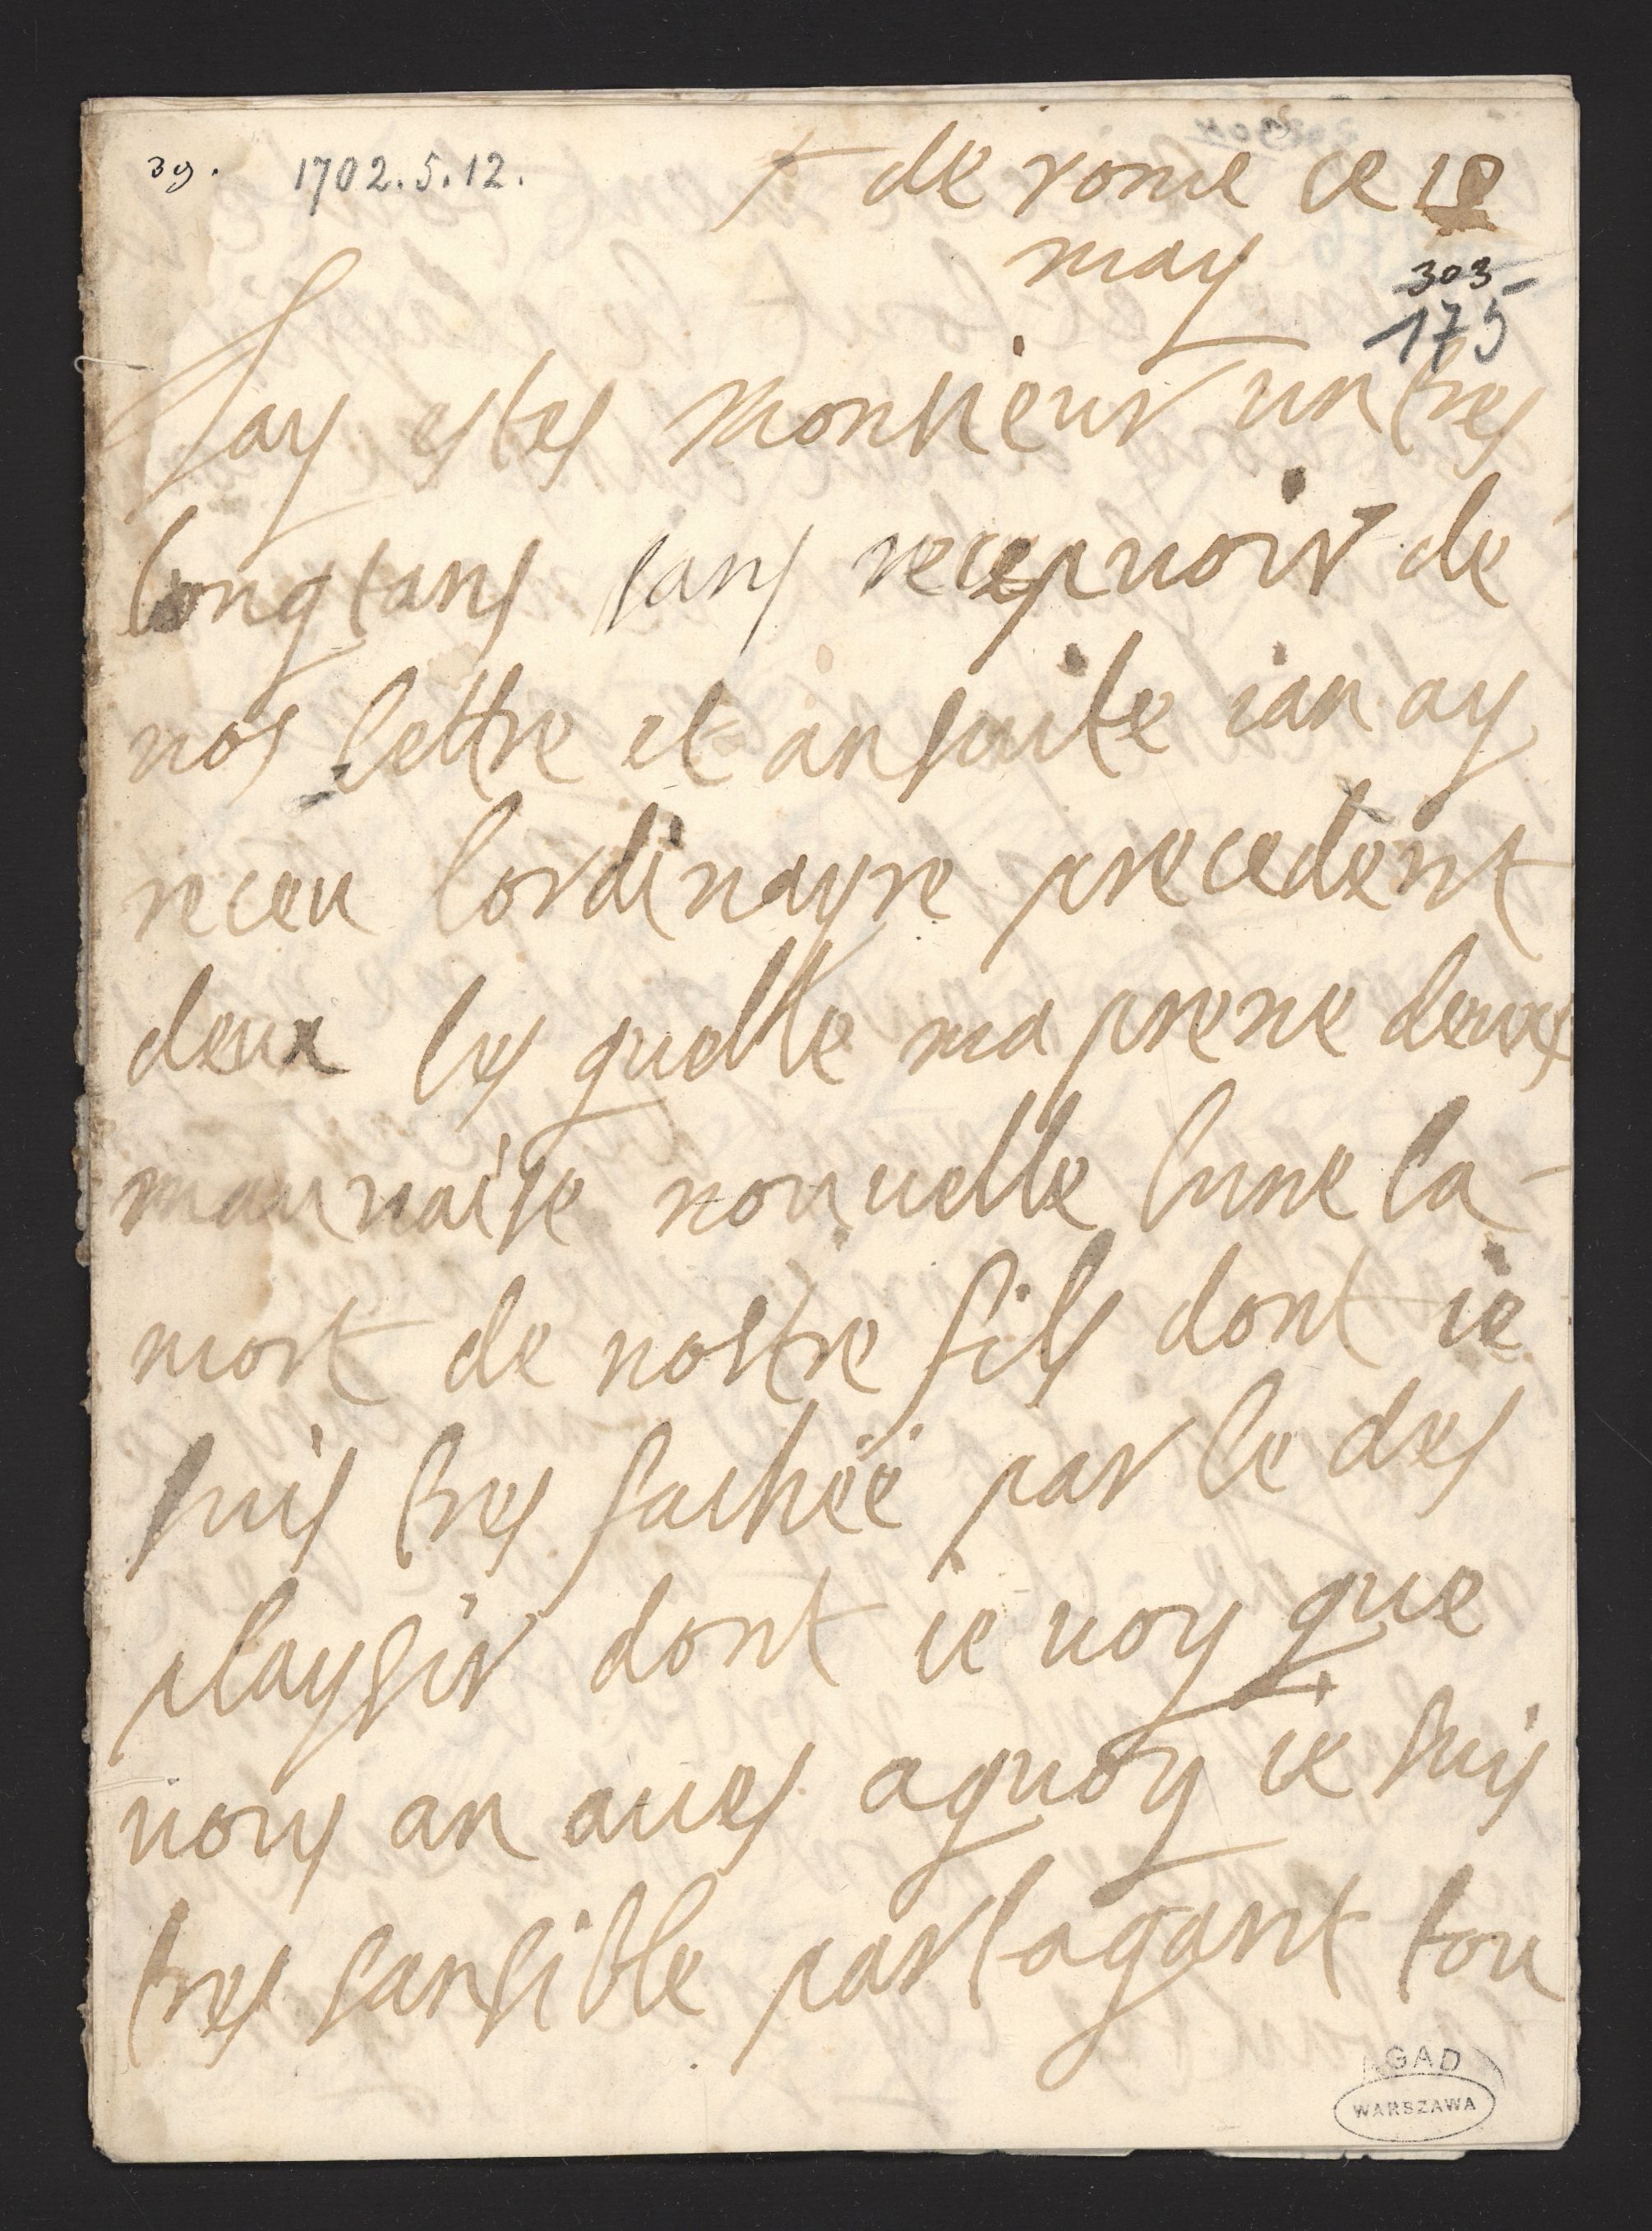 39. 1702.5.12. + de rome ce 12
may
303
175
Jay estes Monsieur un tres
longtans sans recepuoir de
uos lettre et ansuite ian ay
receu lordinayre precedent
deux les quelle ma prene deux
mauuaise nouuelle lune la-
mort de uostre fils dont ie
suis tres fachée par le des
playsir dont ie uoy que
uous an aues aquoy ie suis
tres sansible partagant tou
AGAD
WARSZAWA